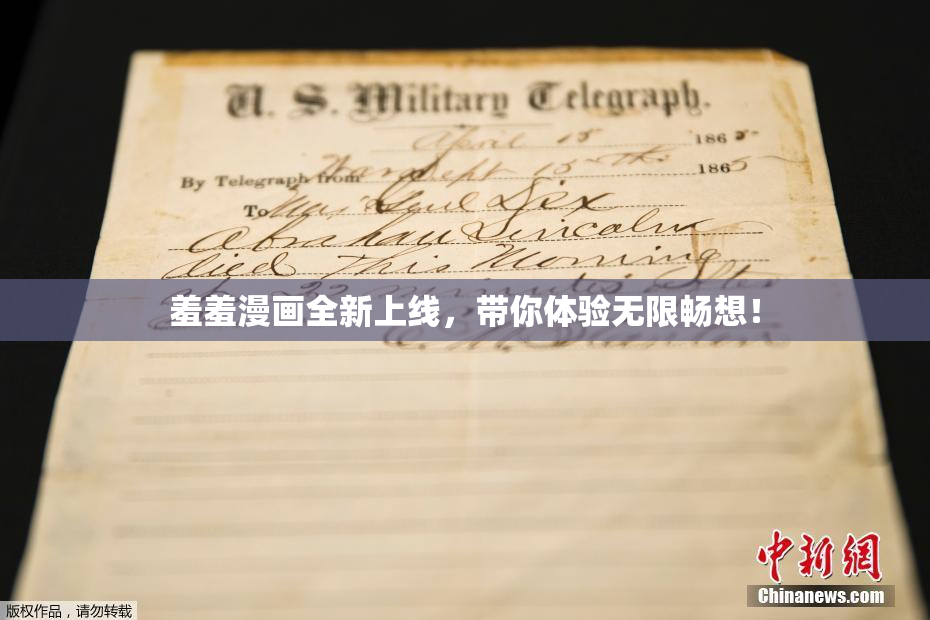 U. S. Military Telegraph.
April 15 1865
By Telegraph from Wash 15th 1865
To Maj Genl Dix
Abraham Lincoln
died This Morning
at 22 minutes after
羞羞漫画全新上线，带你体验无限畅想！
E. M. Stanton
中新网
Chinanews.com
版权作品，请勿转载